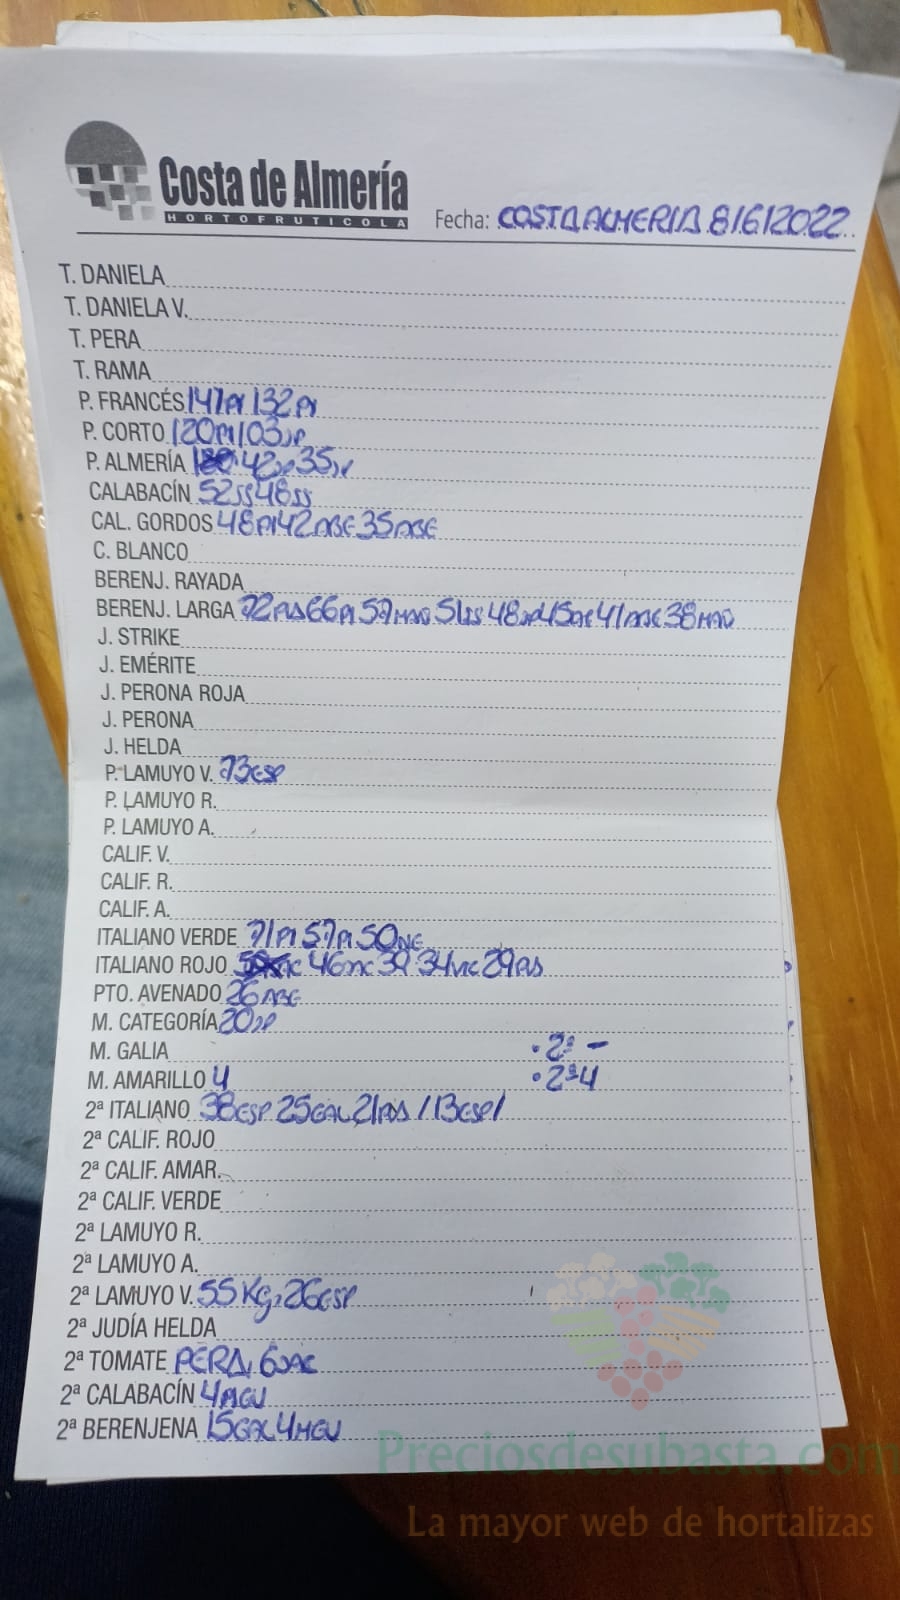 Costa de Almería
HORTOFRUTICOLA
Fecha: COSTA ALMERIA 8/6/2022
T. DANIELA
T. DANIELA V.
T. PERA
T. RAMA
P. FRANCÉS 147PI 132PI
P. CORTO 120PI 103JP
P. ALMERÍA 42 35
CALABACÍN 52SS 48SS
CAL. GORDOS 48PI 42ABE 35ABE
C. BLANCO
BERENJ. RAYADA
BERENJ. LARGA 72 66PI 57 51 48 45 41ABE 38
J. STRIKE
J. EMÉRITE
J. PERONA ROJA
J. PERONA
J. HELDA
P. LAMUYO V. 73ESP
P. LAMUYO R.
P. LAMUYO A.
CALIF. V.
CALIF. R.
CALIF. A.
ITALIANO VERDE 71PI 57PI 50
ITALIANO ROJO 46 39 34 29
PTO. AVENADO 26ABE
M. CATEGORÍA 20JP
M. GALIA · 2ª -
M. AMARILLO 4 · 2ª 4
2ª ITALIANO 38ESP 25GAL 21 /13ESP/
2ª CALIF. ROJO
2ª CALIF. AMAR.
2ª CALIF. VERDE
2ª LAMUYO R.
2ª LAMUYO A.
2ª LAMUYO V. 55 Kg, 26ESP
2ª JUDÍA HELDA
2ª TOMATE PERA, 6
2ª CALABACÍN 4MGU
2ª BERENJENA 15GAL 4MGU
Preciosdesubasta.com
La mayor web de hortalizas